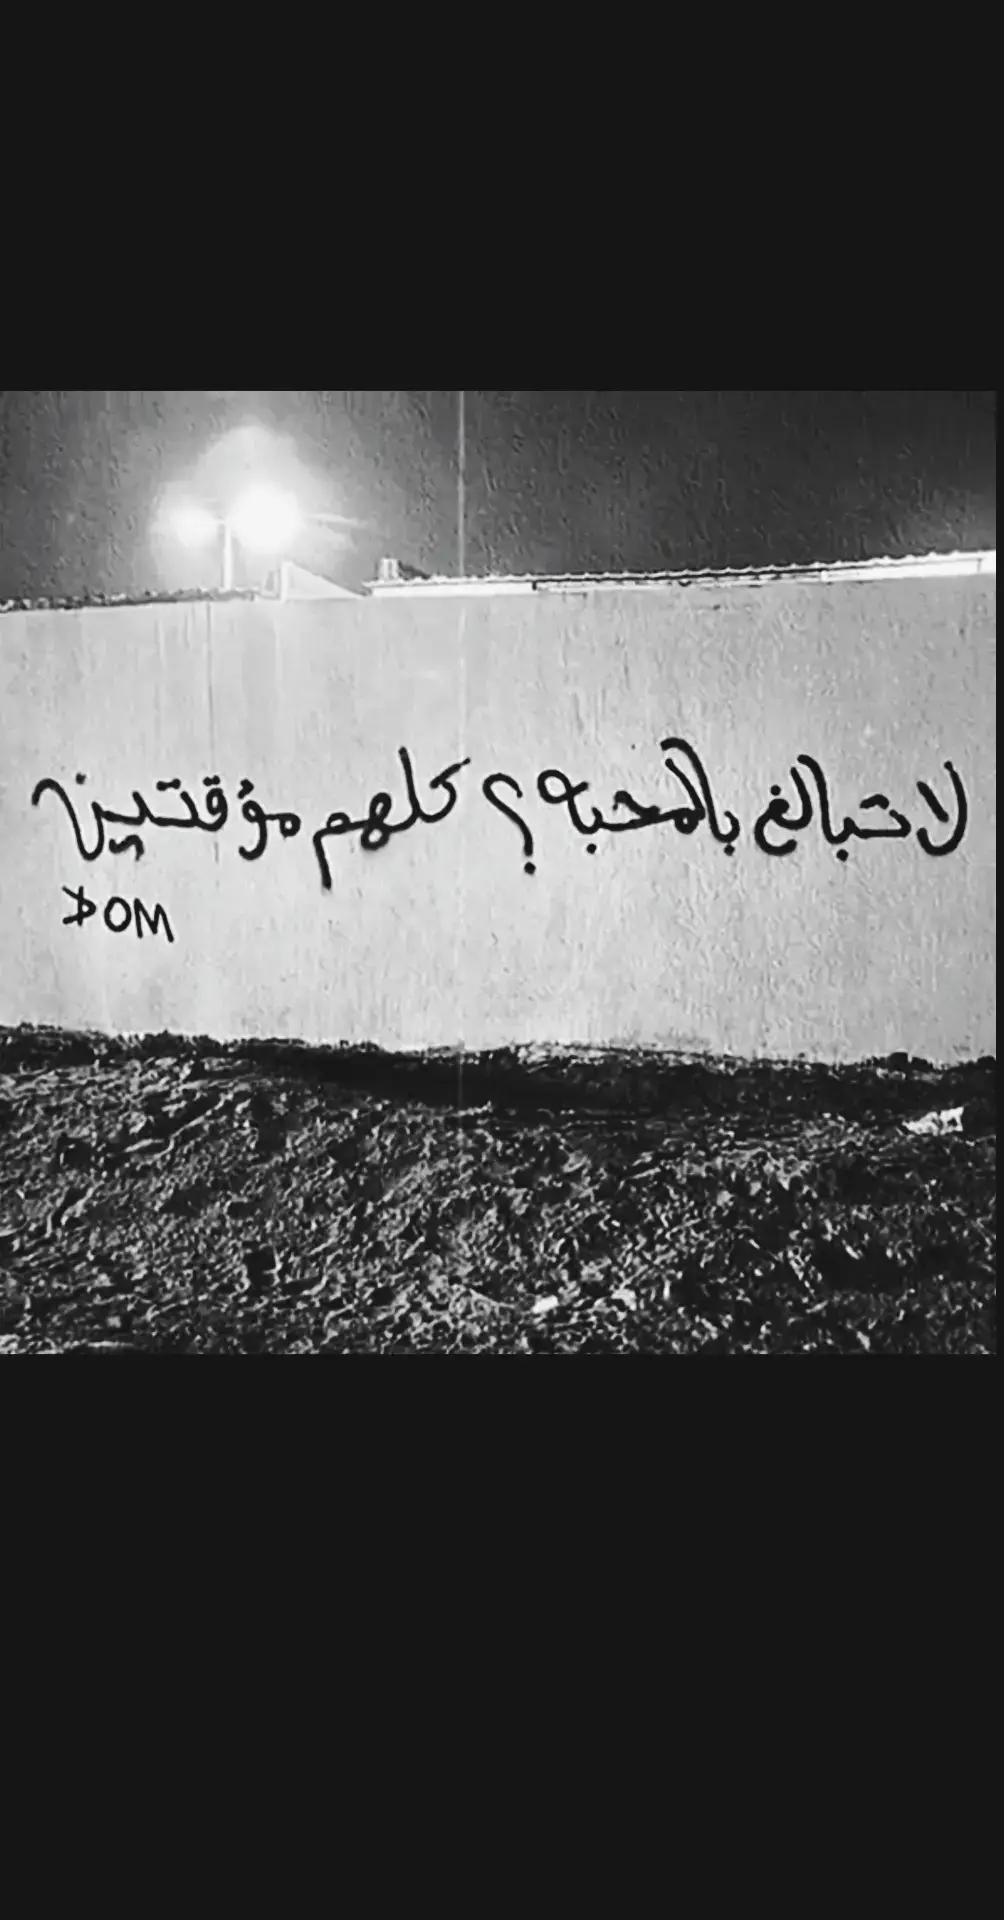 لا تبالغ بالمحبه ؟ كلهم مؤقتين
DOM